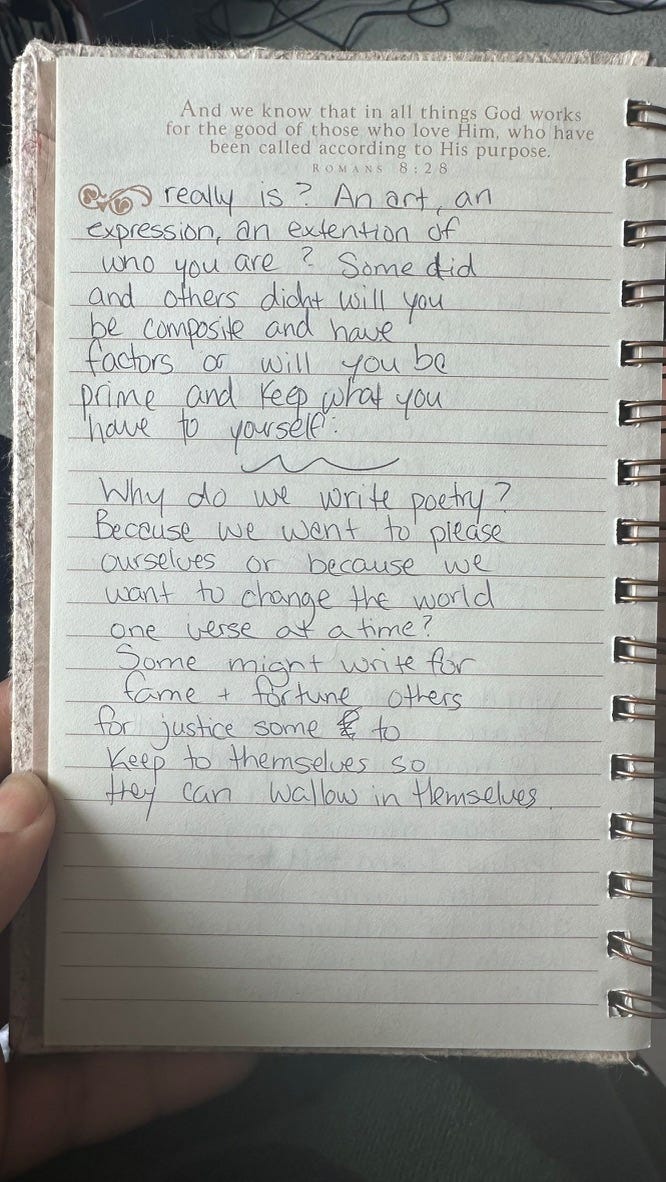 And we know that in all things God works
for the good of those who love Him, who have
been called according to His purpose.
ROMANS 8:28
really is? An art, an
expression, an extention of
who you are? Some did
and others didnt will you
be composite and have
factors or will you be
prime and keep what you
have to yourself.
Why do we write poetry?
Because we want to please
ourselves or because we
want to change the world
one verse at a time?
Some might write for
fame + fortune others
for justice some to
keep to themselves so
they can wallow in themselves.